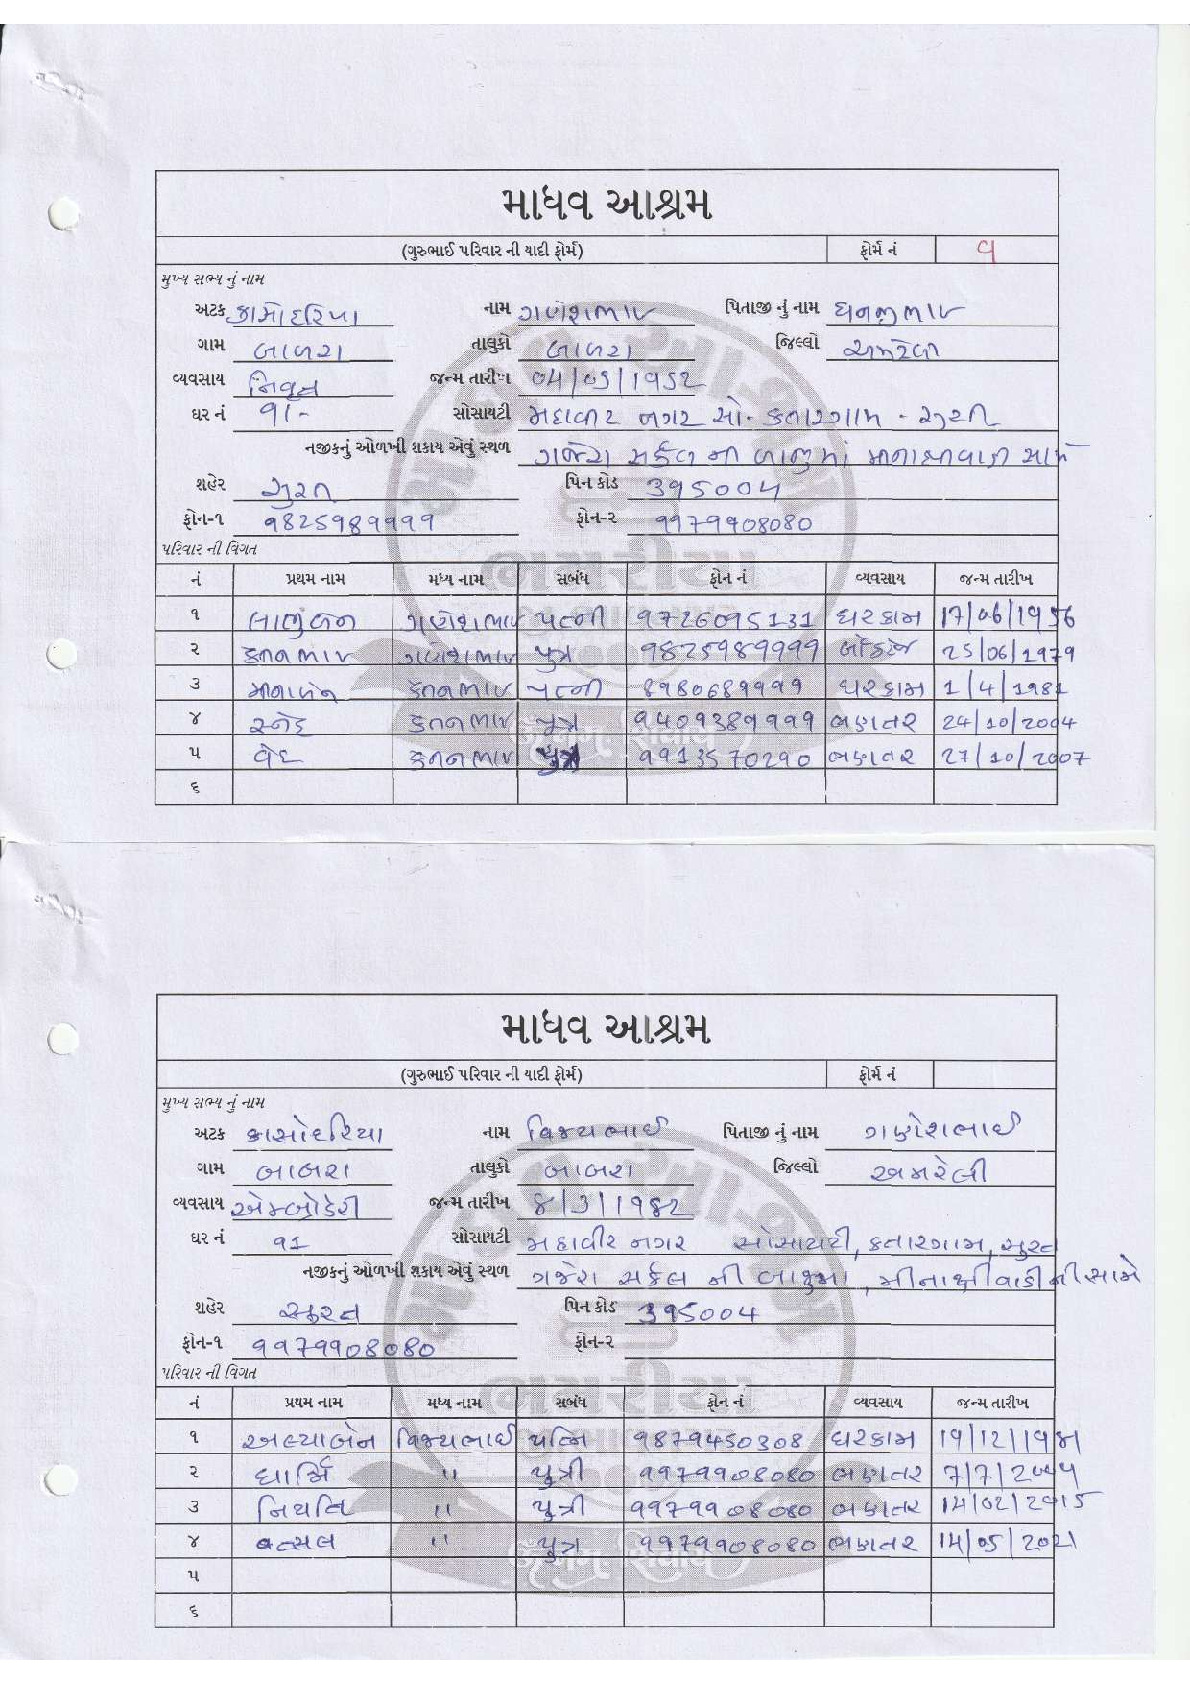 માધવ આશ્રમ
(ગુરુભાઈ પરિવાર ની યાદી ફોર્મ) ફોર્મ નં ૧
મુખ્ય સભ્ય નું નામ
અટક કાસોદરિયા નામ ગણેશભાઈ પિતાજી નું નામ ધનજીભાઈ
ગામ બાબરા તાલુકો બાબરા જિલ્લો અમરેલી
વ્યવસાય નિવૃત જન્મ તારીખ 04/03/1952
ઘર નં ૧૧- સોસાયટી મહાવીર નગર સો. કતારગામ - સુરત
નજીકનું ઓળખી શકાય એવું સ્થળ ગજેરા સર્કલ ની બાજુમાં મીનાક્ષીવાડી સામે
શહેર સુરત પિન કોડ 395004
ફોન-૧ ૧825૧8૧૧૧૧ ફોન-૨ ૧૧7૧૧08080
પરિવાર ની વિગત
નં પ્રથમ નામ મધ્ય નામ સબંધ ફોન નં વ્યવસાય જન્મ તારીખ
૧ ગણેશભાઈ પત્ની ૧726૦૧5131 ઘરકામ 17/06/1956
૨ કેતનભાઈ ગણેશભાઈ પુત્ર ૧825૧8૧૧૧૧ 25/06/1૧7૧
૩ મીનાબેન કેતનભાઈ પત્ની 8૧8068૧૧૧૧ ઘરકામ 1/4/1૧81
૪ સ્નેહ કેતનભાઈ પુત્ર ૧40૧38૧૧૧૧ ભણતર 24/10/2004
૫ વેદ કેતનભાઈ પુત્ર ૧૧135702૧0 ભણતર 27/10/2007
૬
માધવ આશ્રમ
(ગુરુભાઈ પરિવાર ની યાદી ફોર્મ) ફોર્મ નં
મુખ્ય સભ્ય નું નામ
અટક કાસોદરિયા નામ વિજયભાઈ પિતાજી નું નામ ગણેશભાઈ
ગામ બાબરા તાલુકો બાબરા જિલ્લો અમરેલી
વ્યવસાય એમ્બ્રોડેરી જન્મ તારીખ ૪/3/1૧82
ઘર નં ૧1 સોસાયટી મહાવીર નગર સોસાયટી, કતારગામ, સુરત
નજીકનું ઓળખી શકાય એવું સ્થળ ગજેરા સર્કલ ની બાજુમા, મીનાક્ષીવાડી ની સામે
શહેર સુરત પિન કોડ 3૧5004
ફોન-૧ ૧૧7૧૧08080 ફોન-૨
પરિવાર ની વિગત
નં પ્રથમ નામ મધ્ય નામ સબંધ ફોન નં વ્યવસાય જન્મ તારીખ
૧ અલ્પાબેન વિજયભાઈ પત્નિ ૧87૧450308 ઘરકામ
૨ ધાર્મિ " પુત્રી ૧૧7૧૧08080 ભણતર
૩ નિયતિ " પુત્રી ૧૧7૧૧08080 ભણતર 14/02/2015
૪ વત્સલ " પુત્ર ૧૧7૧૧08080 ભણતર 14/05/2021
૫
૬